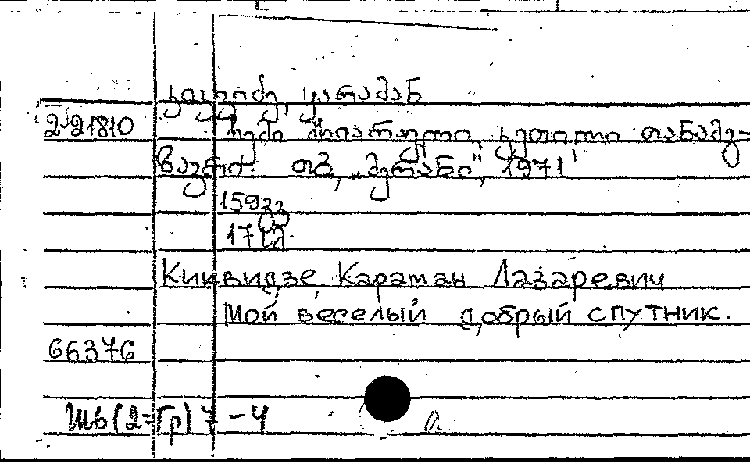 კიკვიძე, ყარამან
ჩემი მხიარული, კეთილი თანამგ-
ზავრი. თბ, „მერანი“, 1971
159გვ
17სმ
Киквидзе, Караман Лазаревич
Мой веселый добрый спутник.
66376
Шб(2=Гр)7-4